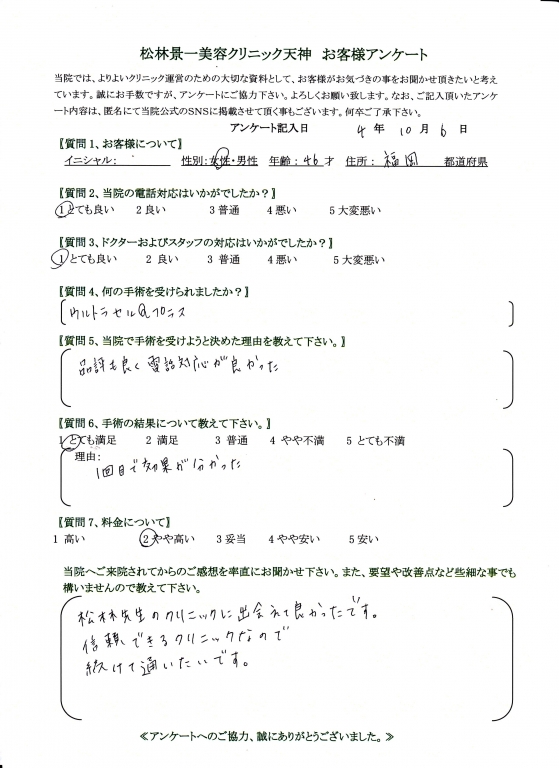 松林景一美容クリニック天神　お客様アンケート
当院では、よりよいクリニック運営のための大切な資料として、お客様がお気づきの事をお聞かせ頂きたいと考え
ています。誠にお手数ですが、アンケートにご協力下さい。よろしくお願い致します。なお、ご記入頂いたアンケ
ート内容は、匿名にて当院公式のSNSに掲載させて頂く事もございます。何卒ご了承下さい。
アンケート記入日　4 年 10 月 6 日
〖質問1、お客様について〗
イニシャル：　性別：女性・男性　年齢：46才　住所：福岡　都道府県
〖質問2、当院の電話対応はいかがでしたか？〗
1とても良い　2良い　3普通　4悪い　5大変悪い
〖質問3、ドクターおよびスタッフの対応はいかがでしたか？〗
1とても良い　2 良い　3 普通　4悪い　5大変悪い
〖質問4、何の手術を受けられましたか？〗
ウルトラセルQプラス
〖質問5、当院で手術を受けようと決めた理由を教えて下さい。〗
品評も良く電話対応が良かった
〖質問6、手術の結果について教えて下さい。〗
1 とても満足　2 満足　3 普通　4 やや不満　5 とても不満
理由：
1回目で効果が分かった
〖質問7、料金について〗
1 高い　2やや高い　3妥当　4やや安い　5安い
当院へご来院されてからのご感想を率直にお聞かせ下さい。また、要望や改善点など些細な事でも
構いませんので教えて下さい。
松林先生のクリニックに出会えて良かったです。
信頼できるクリニックなので
続けて通いたいです。
≪アンケートへのご協力、誠にありがとうございました。≫